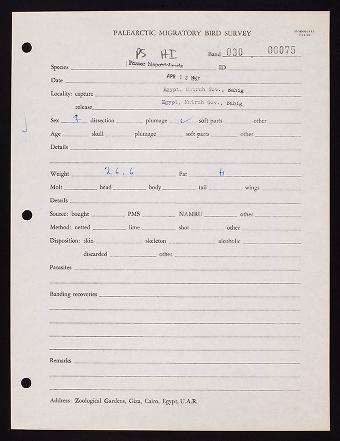 PALEARCTIC MIGRATORY BIRD SURVEY
PS HI Band 030 00075
Species Passer hispaniolensis ID
Date APR 13 1967
Locality: capture Egypt, Matruh Gov., Bahig
release Egypt, Matruh Gov., Bahig
Sex dissection plumage ✓ soft parts other
Age skull plumage soft parts other
Details
Weight 26,6 Fat H
Molt head body tail wings
Details
Source: bought PMS NAMRU other
Method: netted lime shot other
Disposition: skin skeleton alcoholic
discarded other
Parasites
Banding recoveries
Remarks
Address: Zoological Gardens, Giza, Cairo, Egypt, U.A.R.